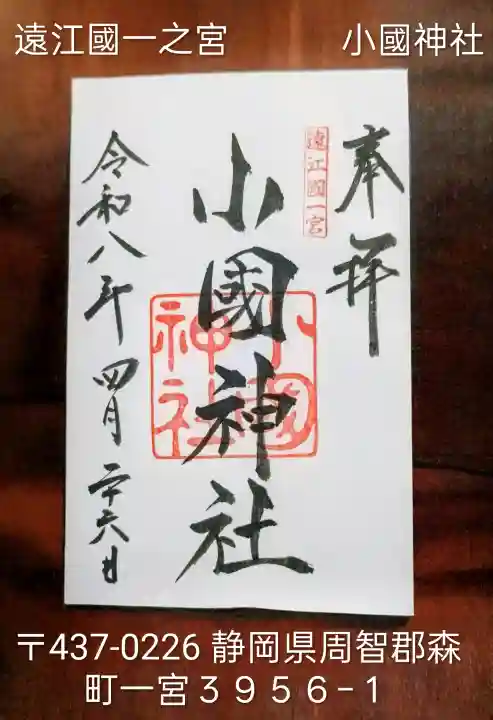 遠江國一之宮 小國神社
奉拝
遠江國一宮
小國神社
小國神社
令和八年 四月 二十六日
〒437-0226 静岡県周智郡森
町一宮３９５６−１